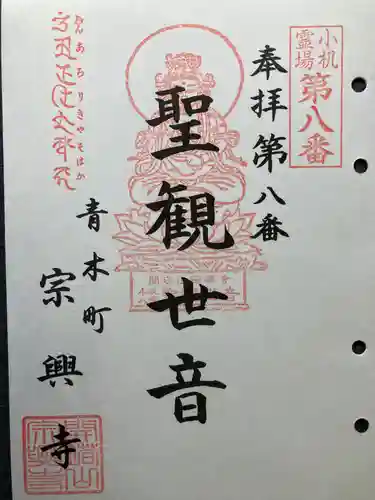 小机
霊場
第八番
奉拝第八番
聖観世音
青木町
宗興寺
おんあろりきやそはか